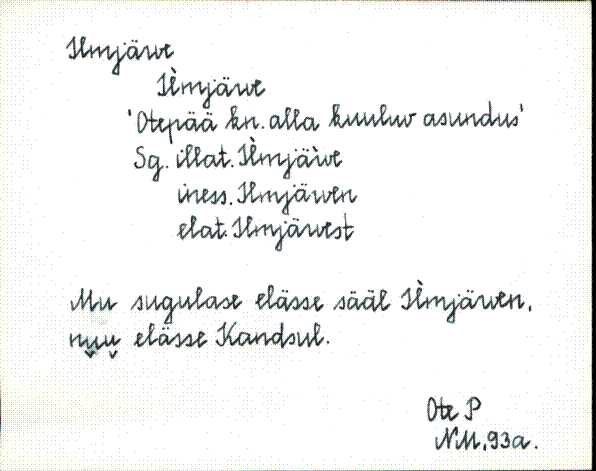 Ilmjäwe
Il̀mjäwe
'Otepää kn. alla kuuluw asundus'
Sg. illat. Il̀mjäẁe
iness. Ilmjäwen
elat. Ilmjäwest
Mu sugulase elässe sääl Il̀mjäwen,
nuu̬ elässe Kandsul.
Ote P
NM, 93a.